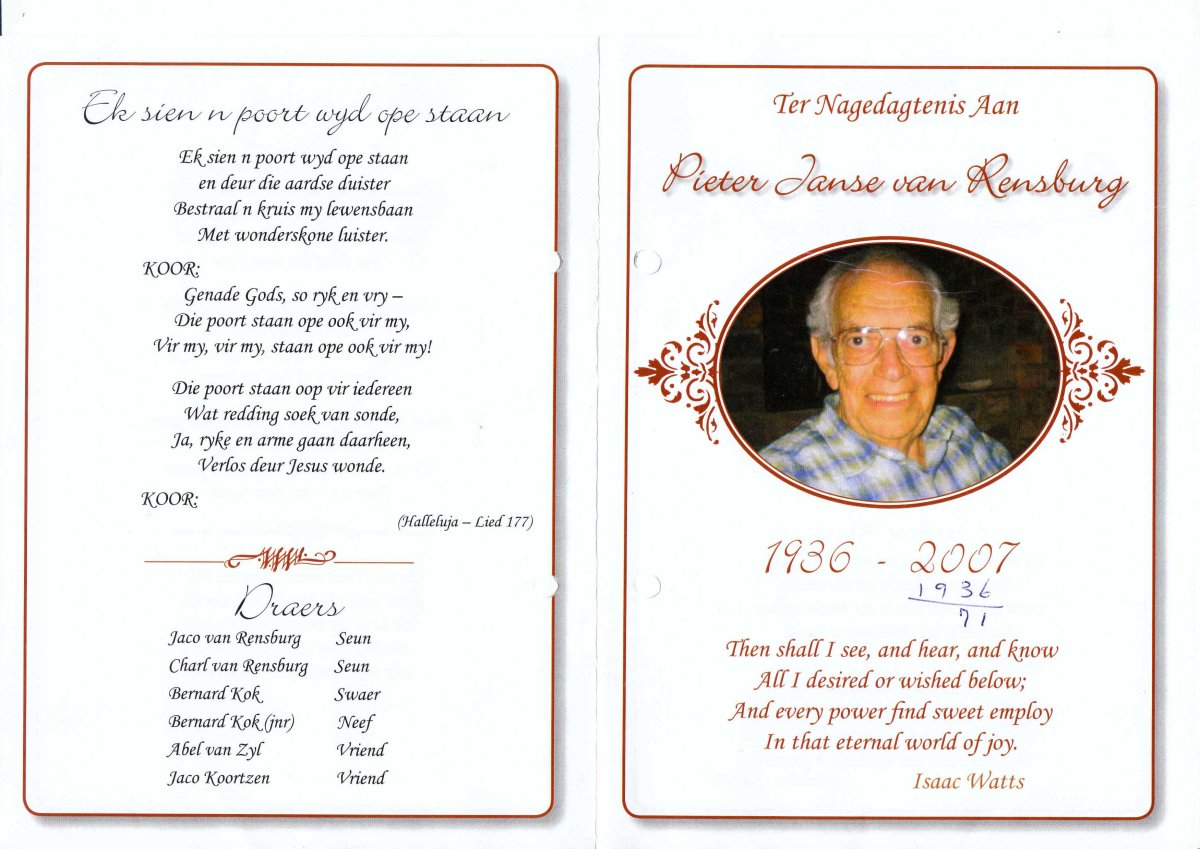 Ek sien n poort wyd ope staan
Ek sien n poort wyd ope staan
en deur die aardse duister
Bestraal n kruis my lewensbaan
Met wonderskone luister.
KOOR:
Genade Gods, so ryk en vry –
Die poort staan ope ook vir my,
Vir my, vir my, staan ope ook vir my!
Die poort staan oop vir iedereen
Wat redding soek van sonde,
Ja, ryke en arme gaan daarheen,
Verlos deur Jesus wonde.
KOOR:
(Halleluja – Lied 177)
Draers
Jaco van Rensburg Seun
Charl van Rensburg Seun
Bernard Kok Swaer
Bernard Kok (jnr) Neef
Abel van Zyl Vriend
Jaco Koortzen Vriend
Ter Nagedagtenis Aan
Pieter Janse van Rensburg
1936 - 2007
1936
71
Then shall I see, and hear, and know
All I desired or wished below;
And every power find sweet employ
In that eternal world of joy.
Isaac Watts